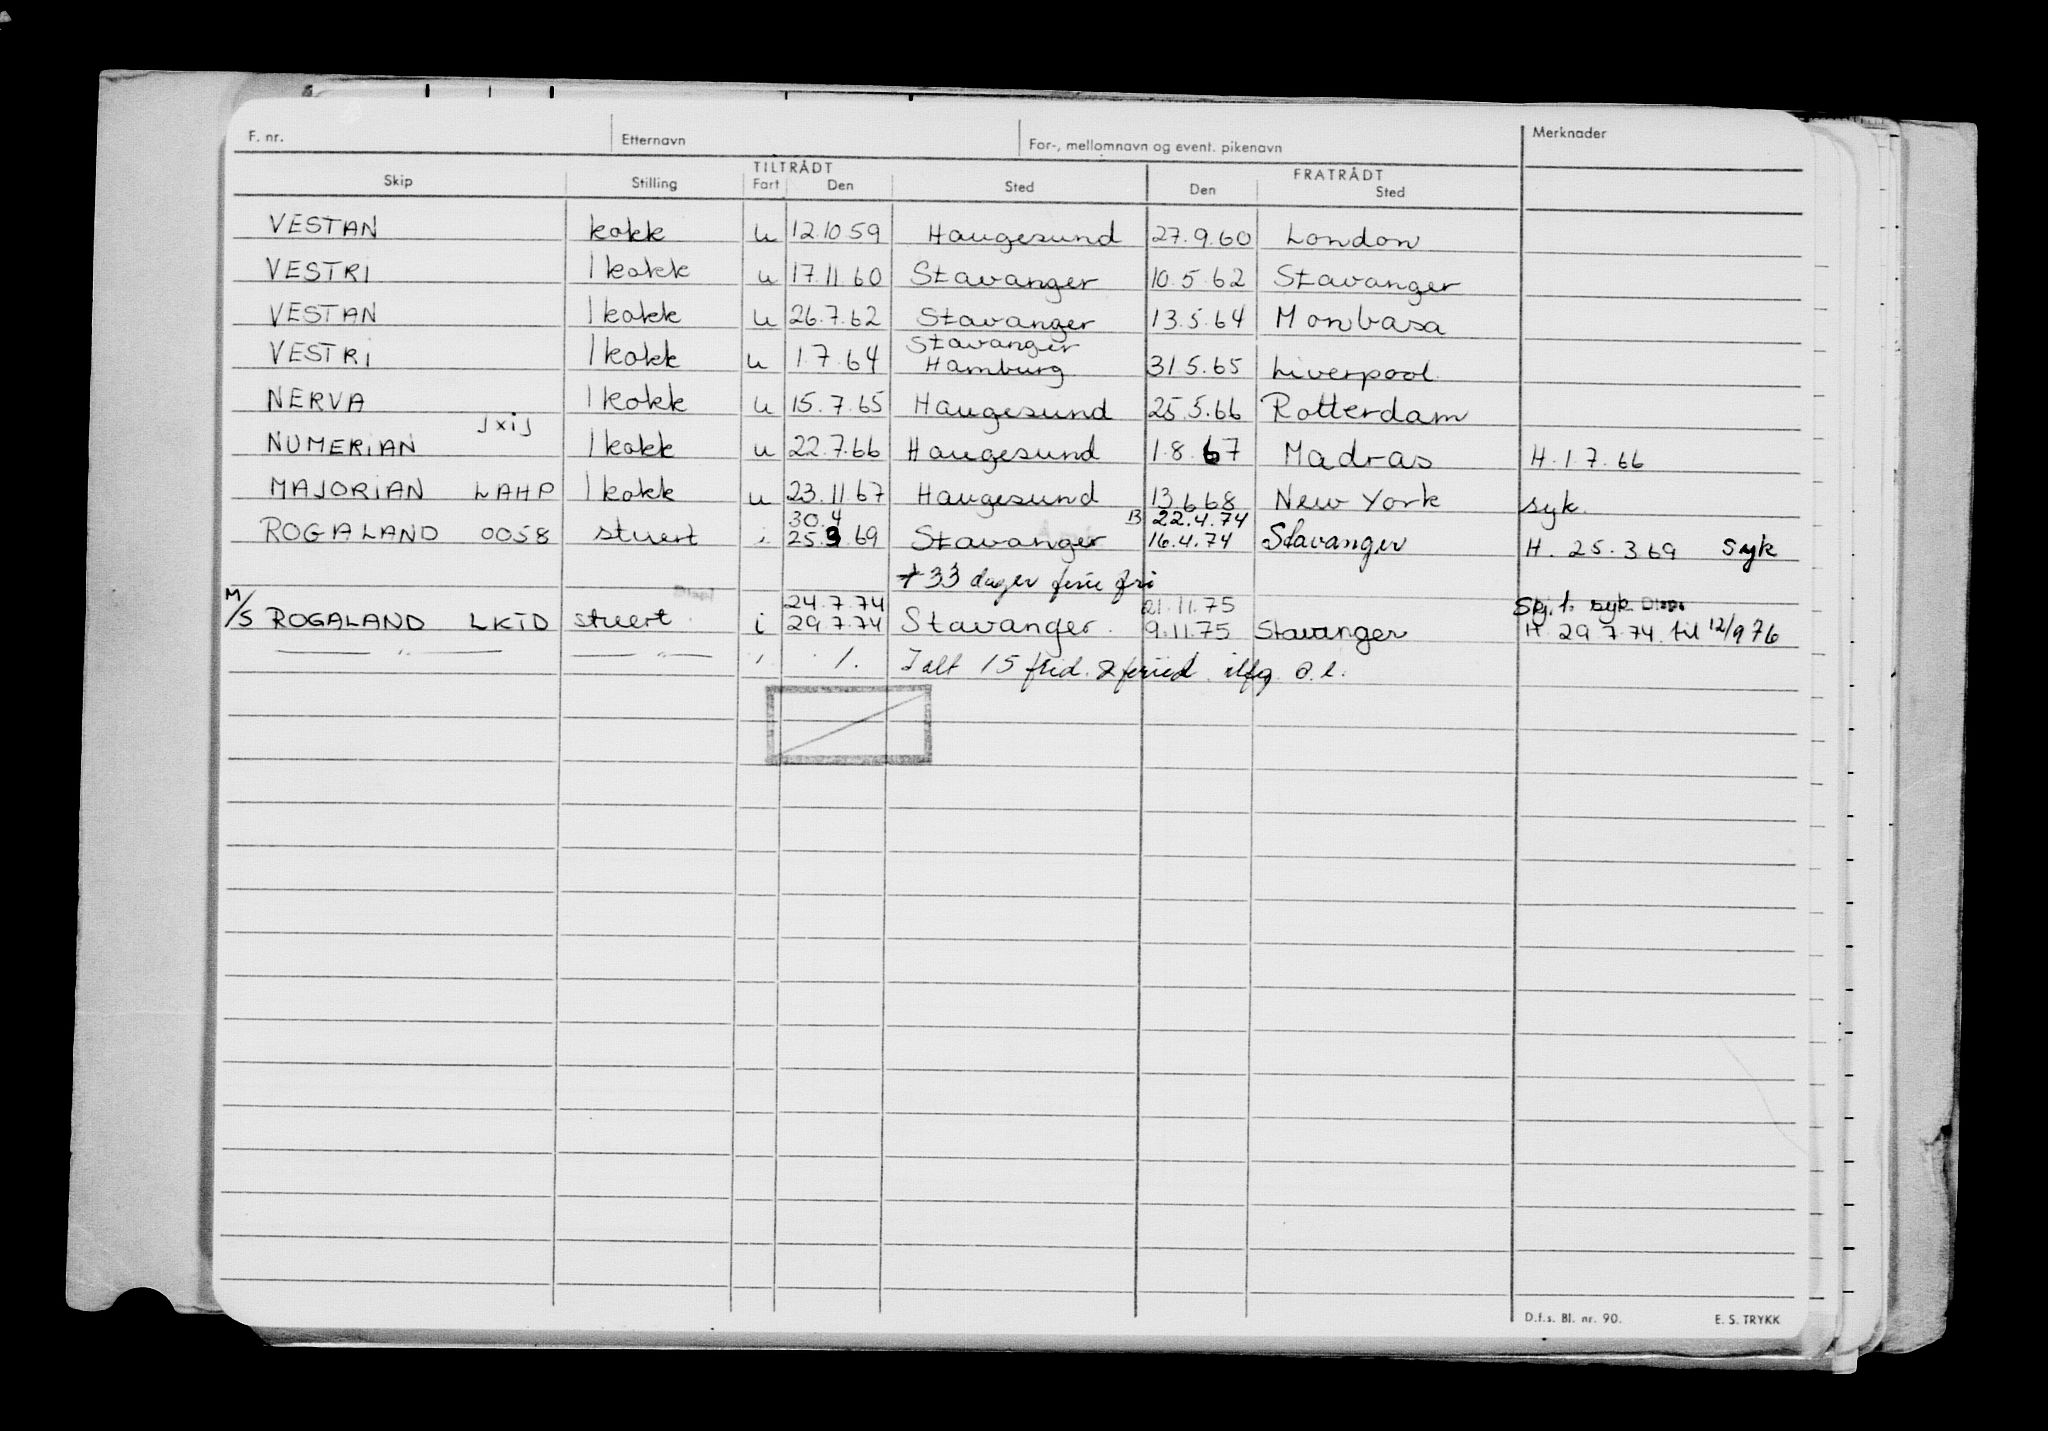 F. nr. Etternavn For-, mellomnavn og event. pikenavn Merknader
TILTRÅDT FRATRÅDT
Skip Stilling Fart Den Sted Den Sted
VESTAN kokk u 12.10 59 Haugesund 27.9.60 London
VESTRI 1 kokk u 17.11 60 Stavanger 10.5.62 Stavanger
VESTAN 1 kokk u 26.7.62 Stavanger 13.5.64 Monbasa
Stavanger
VESTRI 1 kokk u 1.7.64 Hamburg 31.5.65 Liverpool
NERVA 1 kokk u 15.7.65 Haugesund 25.5.66 Rotterdam
JXIJ
NUMERIAN 1 kokk u 22.7.66 Haugesund 1.8.67 Madras H. 1.7.66
MAJORIAN LAHP 1 kokk u 23.11 67 Haugesund 13.6.68 New York syk.
30.4 B 22.4.74
ROGALAND 0058 stuert i 25.3.69 Stavanger 16.4.74 Stavanger H. 25.3 69 Syk
+ 33 dager ferie fri
24.7.74 21.11.75 Spj. l. syk
M/S ROGALAND LKID stuert i 29.7.74 Stavanger. 9.11.75 Stavanger H. 29.7.74. til 12/9 76
— " — — " — i 1. I alt 15 frid. & feried. iflg. o.l.
D.f.s. Bl. nr. 90. E. S. TRYKK